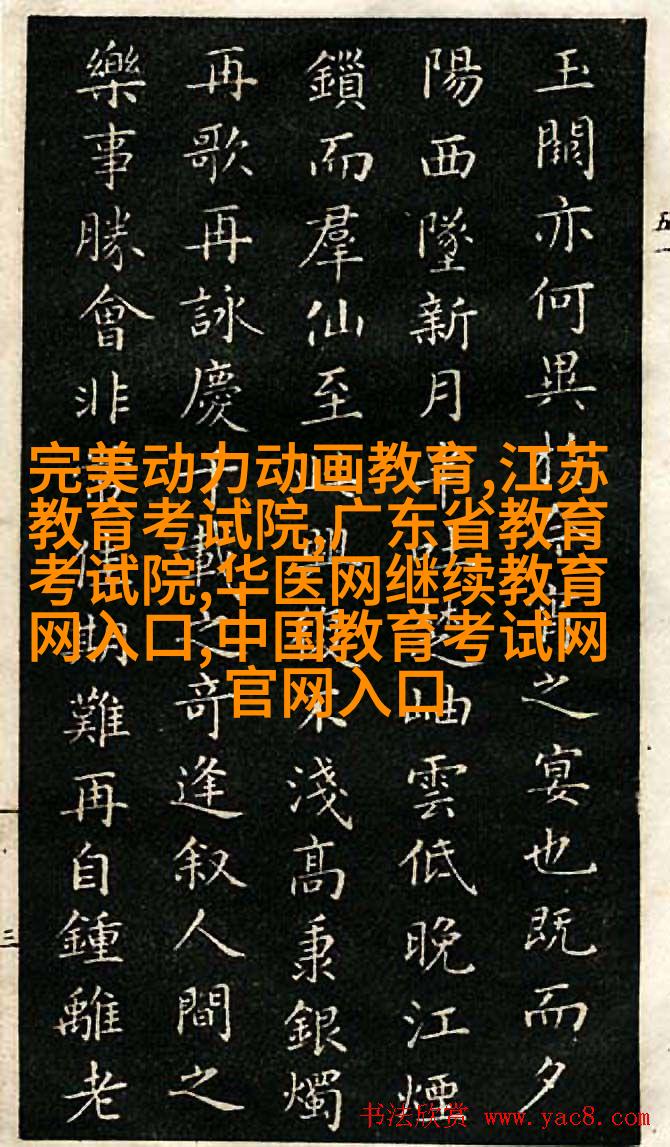 玉闕亦何異之宴也既而夕
陽西墜新月半吐楚岫雲低晚江煙
鎖而羣仙至此興不淺高秉銀燭
再歌再詠慶千載之奇逢叙人間之
樂事勝會非期難再自鍾離老
完美动力动画教育,江苏
教育考试院,广东省教育
考试院,华医网继续教育
网入口,中国教育考试网
官网入口
书法欣赏 www.yac8.com